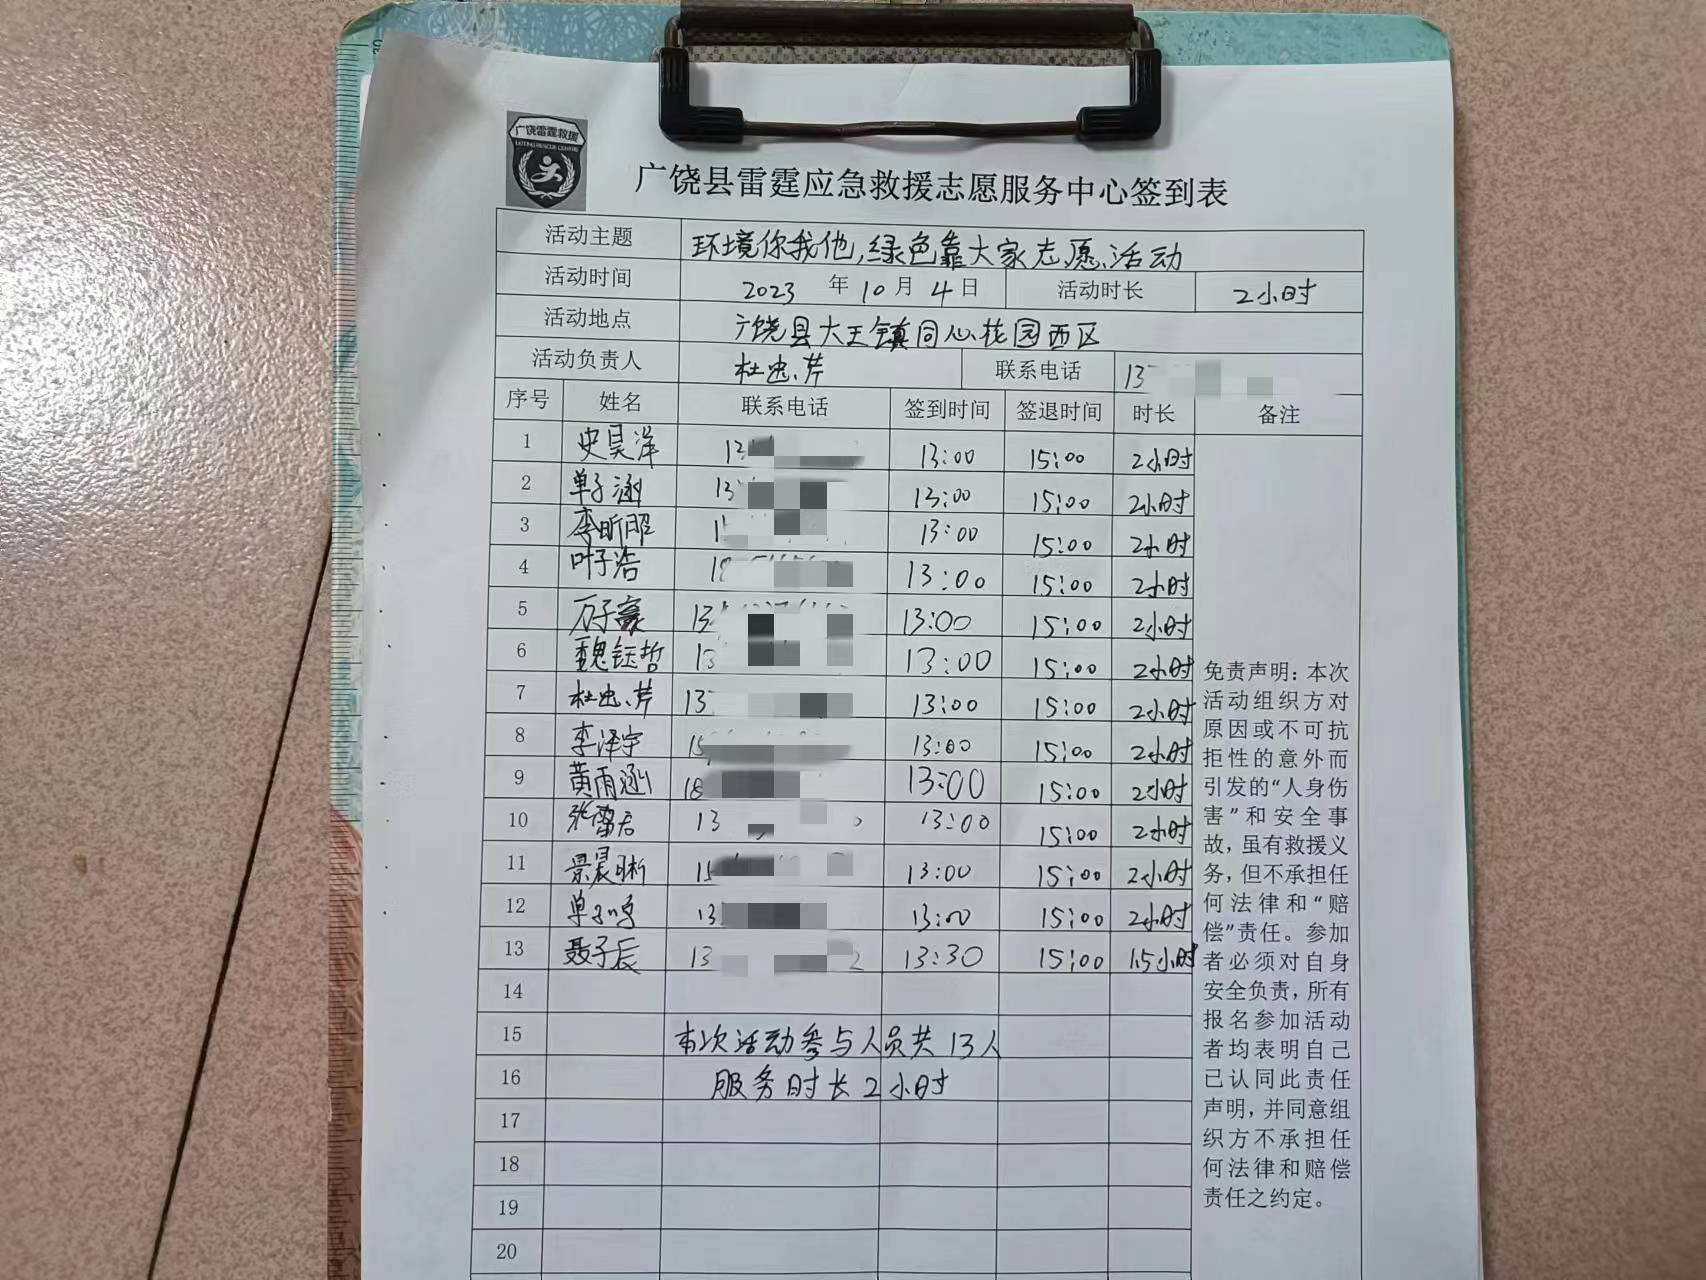 30
广饶雷霆救援
广饶县雷霆应急救援志愿服务中心签到表
活动主题 环境你我他,绿色靠大家志愿活动
活动时间 2023 年 10 月 4 日 活动时长 2小时
活动地点 广饶县大王镇同心花园西区
活动负责人 杜迪芹 联系电话 13
序号 姓名 联系电话 签到时间 签退时间 时长 备注
1 史昊泽 13 13:00 15:00 2小时
2 单子涵 13 13:00 15:00 2小时
3 李昕昭 1 13:00 15:00 2小时
4 叶子浩 18 13:00 15:00 2小时
5 万子豪 13 13:00 15:00 2小时
6 魏钰哲 13 13:00 15:00 2小时
7 杜迪芹 13 13:00 15:00 2小时
8 李泽宇 15 13:00 15:00 2小时
9 黄雨涵 18 13:00 15:00 2小时
10 张 13 13:00 15:00 2小时
11 景晨晰 15 13:00 15:00 2小时
12 单子鸣 13 13:00 15:00 2小时
13 聂子辰 13 2 13:30 15:00 1.5小时
14
15 本次活动参与人员共13人
16 服务时长2小时
17
18
19
20
免责声明:本次
活动组织方对
原因或不可抗
拒性的意外而
引发的“人身伤
害”和安全事
故,虽有救援义
务,但不承担任
何法律和“赔
偿”责任。参加
者必须对自身
安全负责,所有
报名参加活动
者均表明自己
已认同此责任
声明,并同意组
织方不承担任
何法律和赔偿
责任之约定。